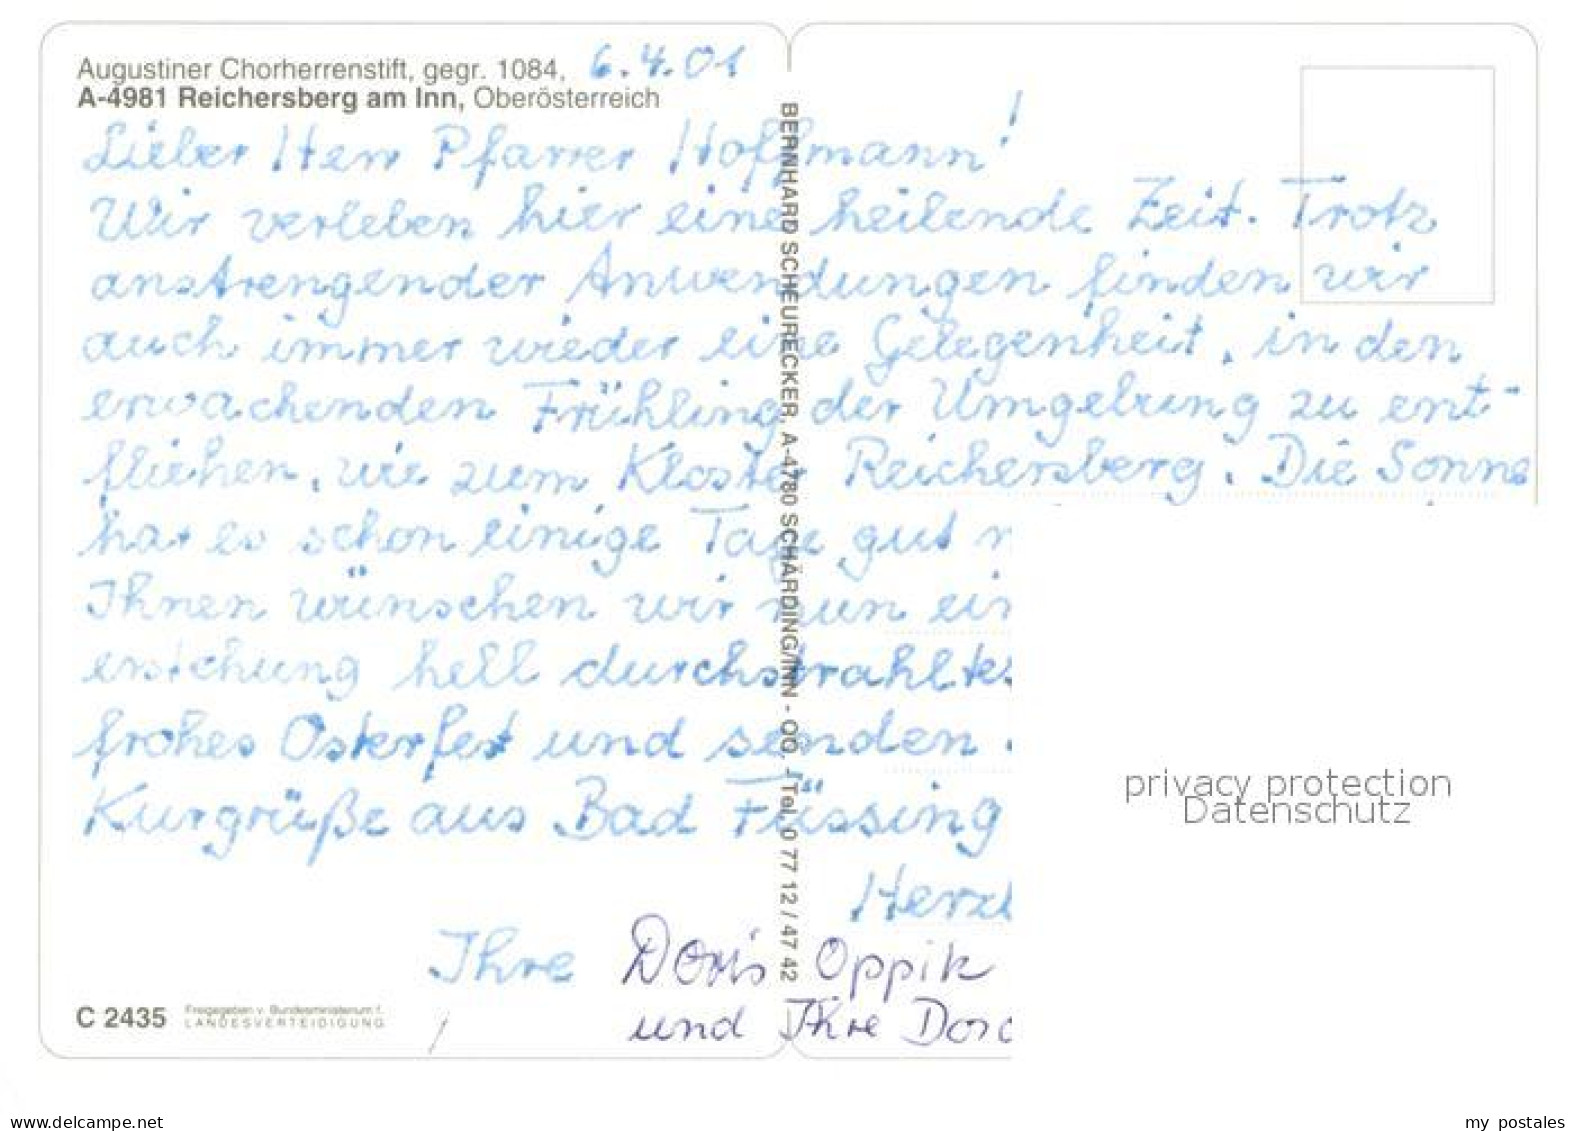 Augustiner Chorherrenstift, gegr. 1084, 6.4.01
A-4981 Reichersberg am Inn, Oberösterreich
Lieber Herr Pfarrer Hoffmann!
Wir verleben hier eine heilende Zeit. Trotz
anstrengender Anwendungen finden wir
auch immer wieder eine Gelegenheit, in den
erwachenden Frühling der Umgebung zu ent-
fliehen, wie zum Kloster Reichersberg. Die Sonne
hat es schon einige Tage gut
Ihnen wünschen wir nun ein
erstehung hell durchstrahltes
frohes Osterfest und senden
Kurgrüße aus Bad Füssing
Herzl
Ihre Doris Oppik
und Ihre Doro
BERNHARD SCHEURECKER, A-4780 SCHÄRDING/INN - OÖ. - Tel. 0 77 12 / 47 42
C 2435 Freigegeben v. Bundesministerium f.
LANDESVERTEIDIGUNG
privacy protection
Datenschutz
www.delcampe.net
my_postales